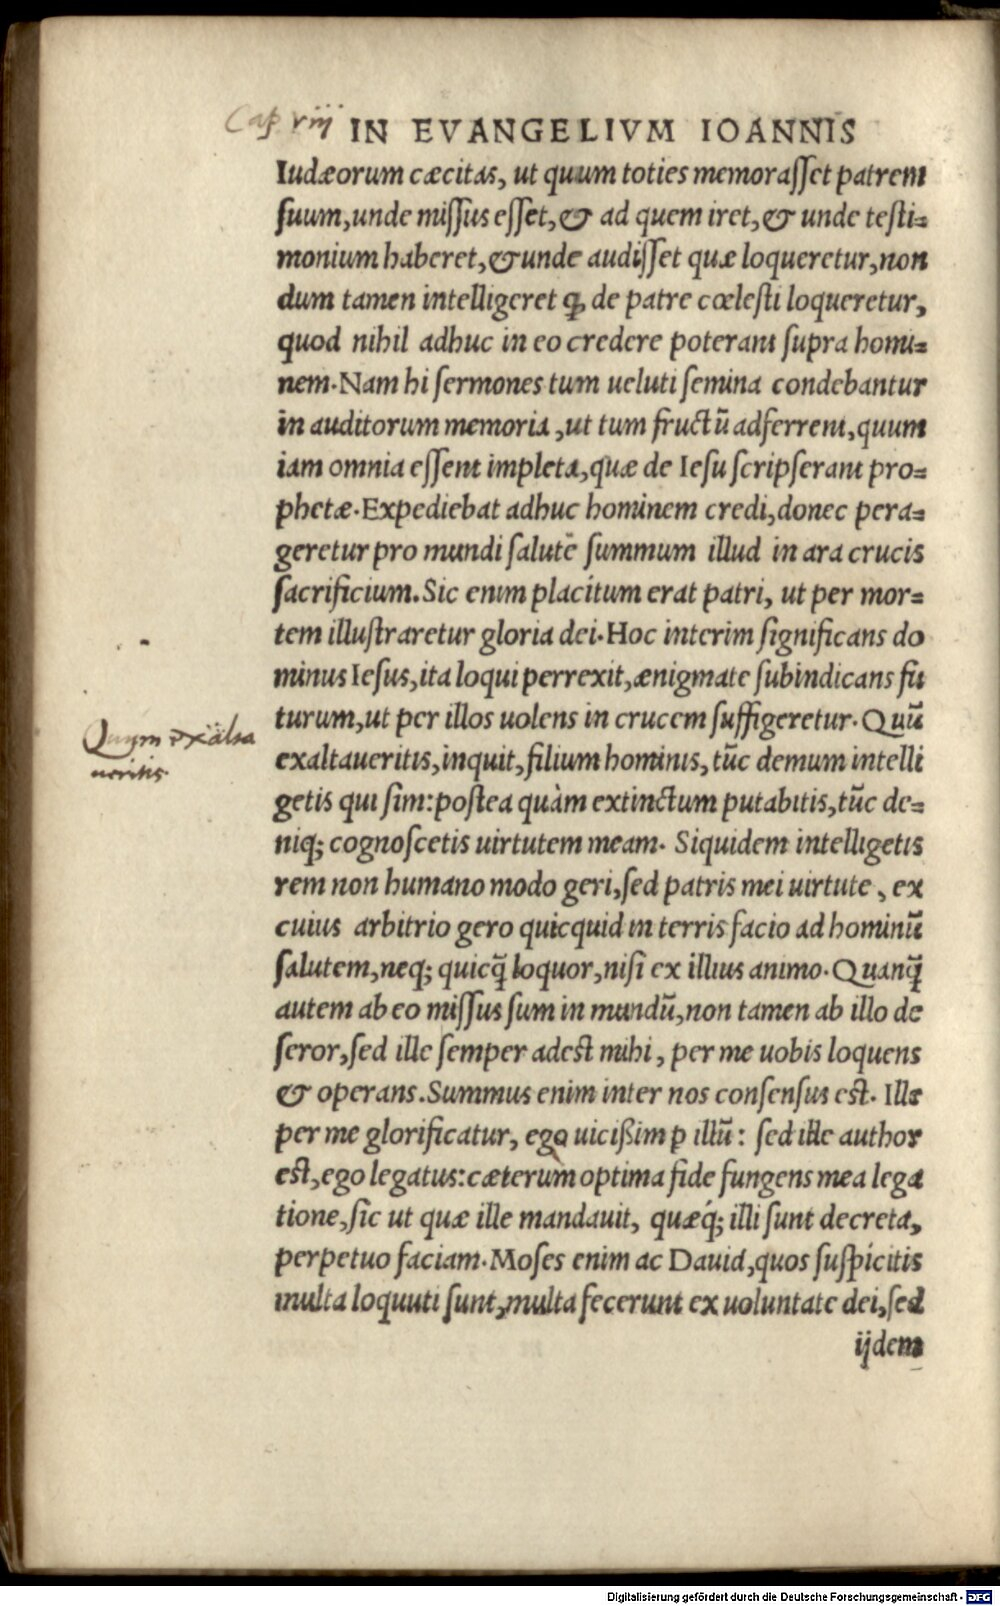 Cap viij IN EVANGELIVM IOANNIS
Iudæorum cæcitas, ut quum toties memorasset patrem
suum,unde missus esset,& ad quem iret,& unde testi=
monium haberet,&unde audisset quæ loqueretur,non
dum tamen intelligeret ꝙ de patre cœlesti loqueretur,
quod nihil adhuc in eo credere poterant supra homi=
nem.Nam hi sermones tum ueluti semina condebantur
in auditorum memoria,ut tum fructū adferrent,quum
iam omnia essent impleta,quæ de Iesu scripserant pro=
phetæ.Expediebat adhuc hominem credi,donec pera=
geretur pro mundi salutē summum illud in ara crucis
sacrificium.Sic enim placitum erat patri, ut per mor=
tem illustraretur gloria dei.Hoc interim significans do
minus Iesus,ita loqui perrexit,ænigmate subindicans fu
turum,ut per illos uolens in crucem suffigeretur. Quū
Quum exalta
ueritis.
exaltaueritis,inquit,filium hominis,tūc demum intelli
getis qui sim:postea quàm extinctum putabitis,tūc de=
niq; cognoscetis uirtutem meam. Siquidem intelligetis
rem non humano modo geri,sed patris mei uirtute, ex
cuius arbitrio gero quicquid in terris facio ad hominū
salutem,neq; quicq̄ loquor,nisi ex illius animo.Quanq̄
autem ab eo missus sum in mundū,non tamen ab illo de
seror,sed ille semper adest mihi, per me uobis loquens
& operans.Summus enim inter nos consensus est. Ille
per me glorificatur, ego uicißim ꝑ illū: sed ille author
est,ego legatus:cæterum optima fide fungens mea lega
tione,sic ut quæ ille mandauit, quæq́; illi sunt decreta,
perpetuo faciam.Moses enim ac Dauid,quos suspicitis
multa loquuti sunt,multa fecerunt ex uoluntate dei,sed
ijdem
Digitalisierung gefördert durch die Deutsche Forschungsgemeinschaft - DFG